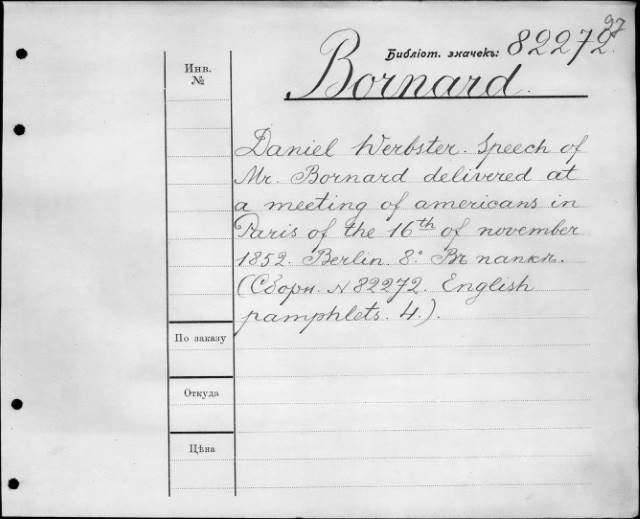 97
Библіот. значекъ: 82272.
Инв.
№
Bornard.
Daniel Werbster. Speech of
Mr. Bornard delivered at
a meeting of americans in
Paris of the 16th of november
1852. Berlin. 8.° Въ папкѣ.
(Сборн. N 82272. English
pamphlets. 4.).
По заказу
Откуда
Цѣна